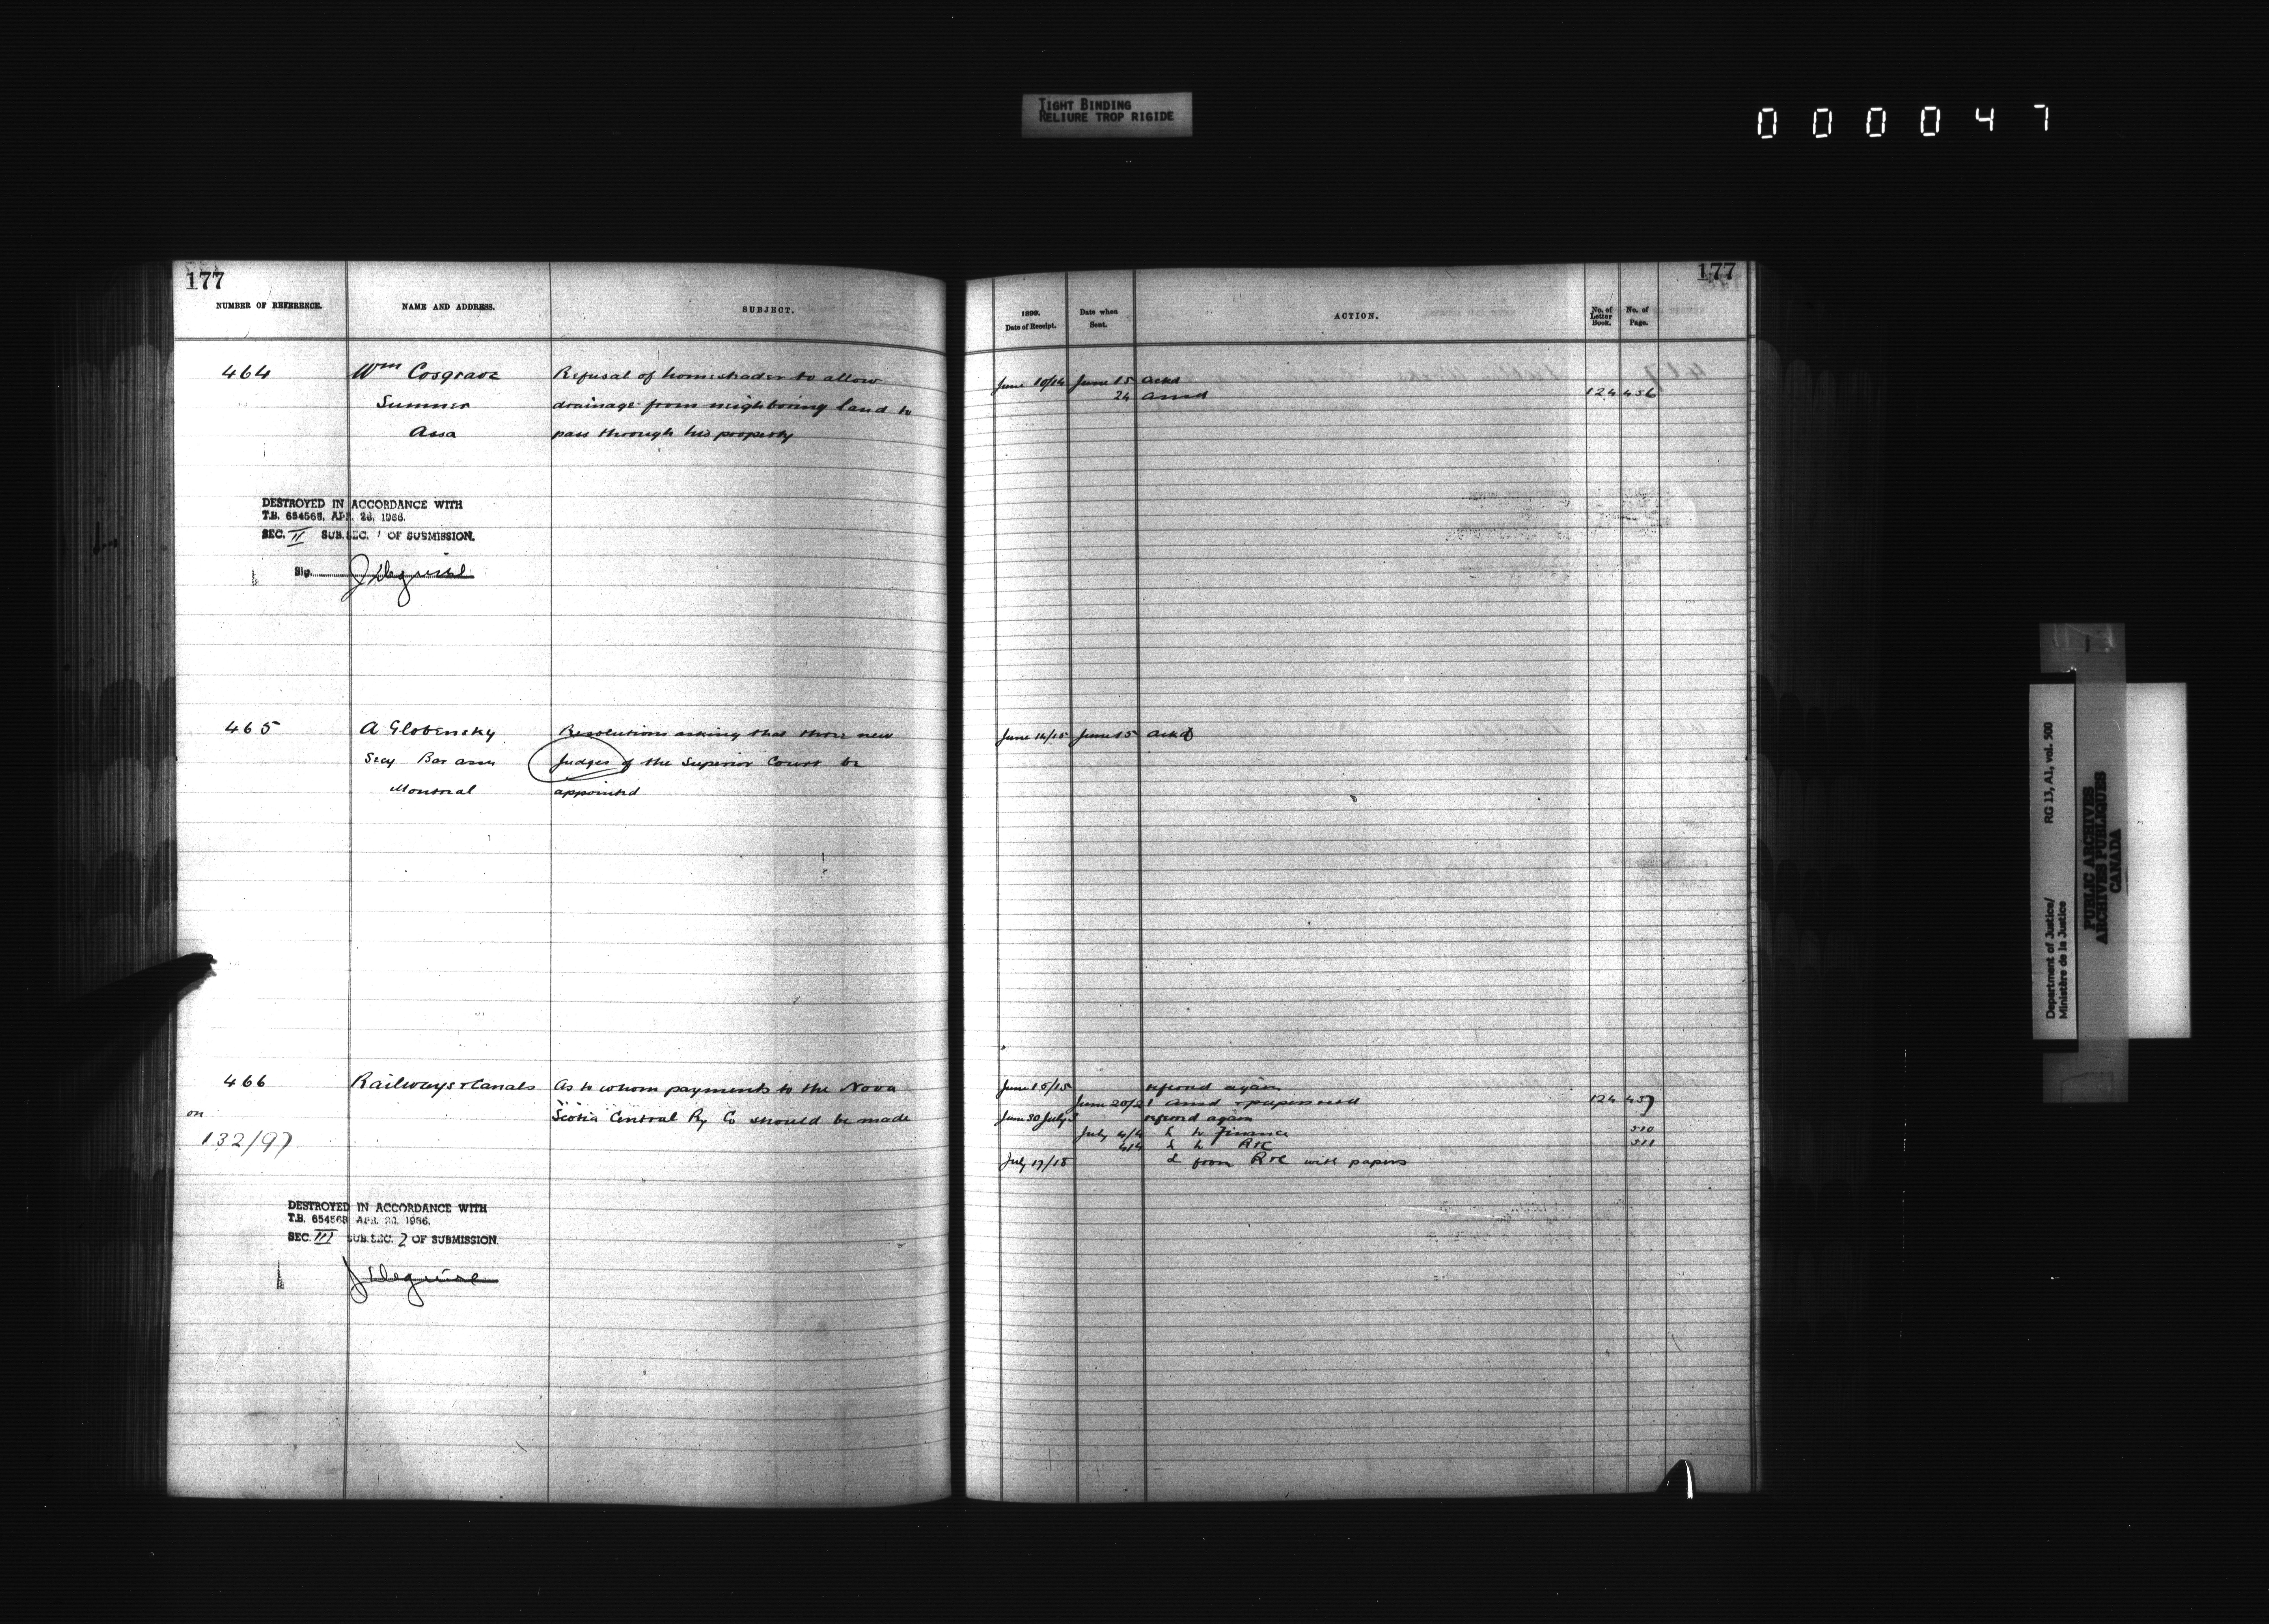 TIGHT BINDING
RELIURE TROP RIGIDE
000047
177
NUMBER OF REFERENCE. NAME AND ADDRESS. SUBJECT.
464 Wm Cosgrave Refusal of homesteader to allow
Sumner drainage from neighboring land to
Assa pass through his property
DESTROYED IN ACCORDANCE WITH
T.B. 654568, APR. 26, 1966.
SEC. II SUB. SEC. 1 OF SUBMISSION.
Sig.
465 A Globensky Resolutions asking that three new
Secy Bar assn Judges of the Superior Court be
Montreal appointed
466 Railways & Canals As to whom payments to the Nova
on Scotia Central Ry Co should be made
132/97
DESTROYED IN ACCORDANCE WITH
T.B. 654568 APR. 26, 1966.
SEC. III SUB. SEC. 2 OF SUBMISSION.
177
1899. Date of Receipt. Date when Sent. ACTION. No. of Letter Book. No. of Page.
June 10/14 June 15 ackd
24 ansd 124 456
June 14/15 June 15 ackd
June 15/15 refered again
June 20/21 ansd & papers retd 124 457
June 30 July 3 refered again
July 4/4 to Finance 510
4/4 R&C 511
July 17/18 from R&C with papers
Department of Justice/ RG 13, A1, vol. 500
Ministère de la Justice
PUBLIC ARCHIVES
ARCHIVES PUBLIQUES
CANADA